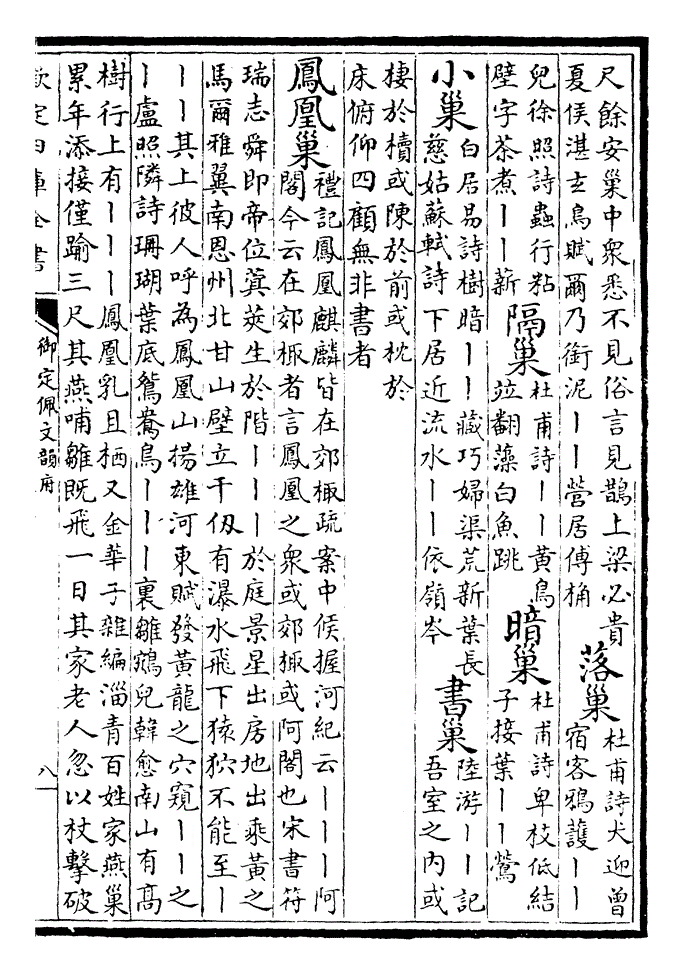 尺餘安巢中衆悉不見俗言見鵲上梁必貴
夏侯湛玄鳥賦爾乃銜泥丨丨營居傅桷
落巢
杜甫詩犬迎曾
宿客鴉護丨丨
兒徐照詩蟲行粘
壁字茶煮丨丨薪
隔巢
杜甫詩丨丨黃鳥
竝翻藻白魚跳
暗巢
杜甫詩卑枝低結
子接葉丨丨鶯
小巢
白居易詩樹暗丨丨藏巧婦渠荒新葉長
慈姑蘇軾詩下居近流水丨丨依嶺岑
書巢
陸游丨丨記
吾室之内或
棲於櫝或陳於前或枕於
床俯仰四顧無非書者
鳳凰巢
禮記鳳凰麒麟皆在郊棷疏案中候握河紀云丨丨丨阿
閣今云在郊棷者言鳳凰之衆或郊棷或阿閣也宋書符
瑞志舜即帝位蓂莢生於階丨丨丨於庭景星出房地出乘黃之
馬爾雅翼南恩州北甘山壁立千仭有瀑水飛下猿狖不能至丨
丨丨其上彼人呼為鳳凰山揚雄河東賦發黃龍之穴窺丨丨之
丨盧照隣詩珊瑚葉底鴛鴦鳥丨丨丨裏雛鵷兒韓愈南山有高
樹行上有丨丨丨鳳凰乳且栖又金華子雜編淄青百姓家燕巢
累年添接僅踰三尺其燕哺雛既飛一日其家老人忽以杖擊破
欽定四庫全書
御定佩文韻府
八